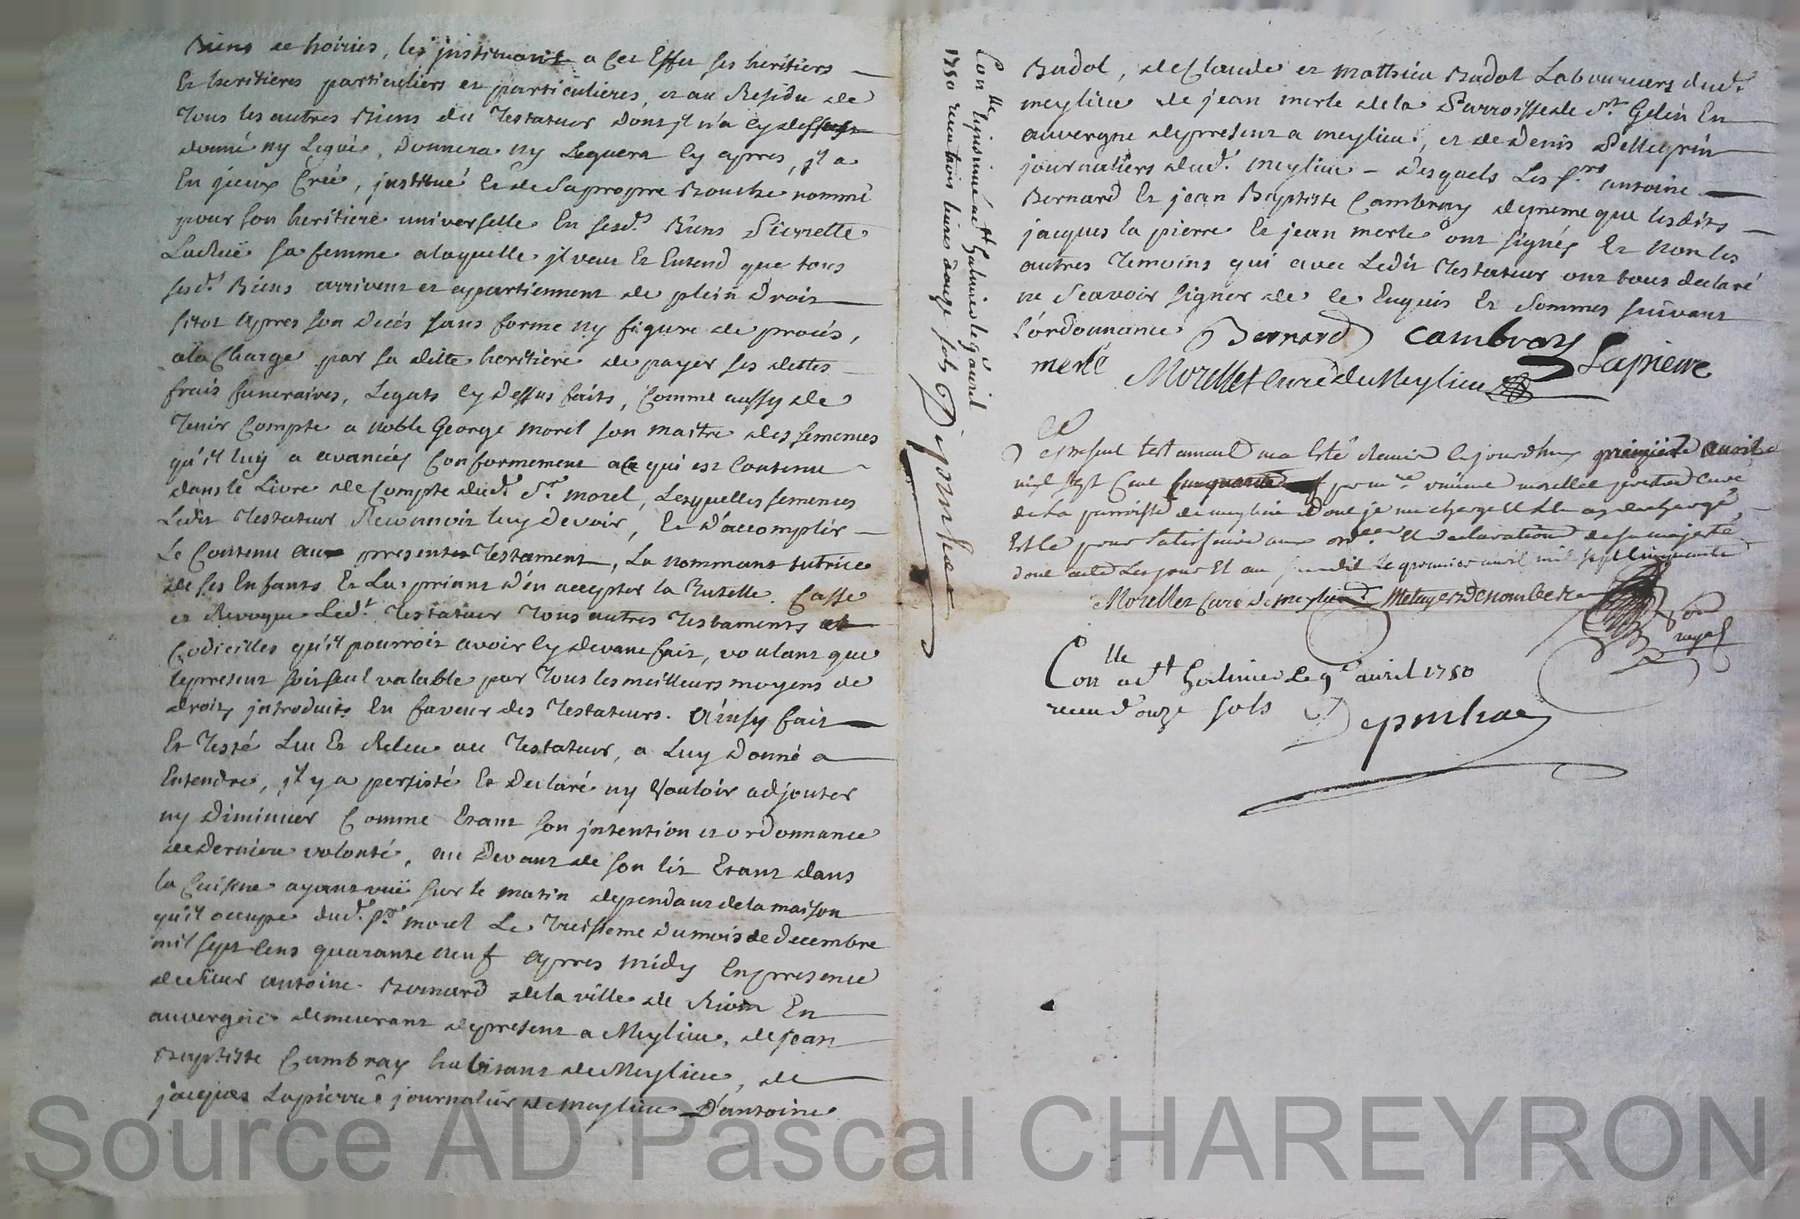 Biens de hoiries, les jnstituant a cet Effet ses heritiers
Et heritieres particuliers et particulieres, et au Residu de
Tous les autres Biens du Testateur dont jl n'a cy dessus
donné ny Legué, Donnera ny Leguera cy apres, jl a
En jceux Créé, jnstitué et de sa propre Bouche nommé
pour son heritiere universelle En sesd.ts Biens Pierrette
Ladreë sa femme a laquelle jl veut Et Entend que tous
sesd.ts Biens arrivent et apartiennent de plein droit
sitot apres son decés sans forme ny figure de procés,
a la Charge par sa ditte heritiere de payer ses dettes
frais funeraires, Legats cy dessus faits, Comme aussy de
Tenir Compte a noble George morel son maitre des semences
qu'il luy a avancées Conformement a Ce qui est Contenu
dans le Livre de Compte dud.t S.r morel, Lesquelles semences
Ledit Testateur Reconnoit luy devoir, Et D'accomplir
Le Contenu au present Testament, La nommant tutrice
de ses Enfants Et La priant d'en accepter la Tutelle. Casse
et Revoque Led.t Testateur Tous autres Testaments et
Codicilles qu'il pourroit avoir cy devant fait, voulant que
le present soit seul valable par Tous les meilleurs moyens de
droit jntroduits En faveur des Testateurs. Ainsy fait
Et Testé Lu Et Relu au Testateur, a Luy Donné a
Entendre, jl y a persisté Et Declaré ny Vouloir adjouter
ny Diminuer Comme Etant son jntention et ordonnance
de Derniere volonté, au Devant de son lit Etant dans
la Cuisine ayant vuë sur le matin dependant de la maison
qu'il occupe dud.t S.r morel Le Troisieme du mois de Decembre
mil sept cens quarante neuf apres midy En presence
de sieur antoine Bernard de la ville de Riom En
auvergne demeurant a present a Meylieu, de jean
Baptiste Cambray habitant de Meylieu, de
jacques Lapierre journalier de meylieu D'antoine
Con.lle a M.t Galmier le 9 avril
1750 receu douze sols
Deponhac
Badol, de Claude et mathieu Badol Laboureurs dud.t
meylieu de jean merle de la Parroisse de S.t Gelin En
auvergne de present a meylieu, et de Denis Pellegrin
journaliers dud.t meylieu - Desquels Les S.rs antoine
Bernard Et jean Baptiste Cambray de meme que lesdits
jacques la pierre Et jean merle ont signés Et non les
autres Temoins qui avec Ledit Testateur ont tous declaré
ne sçavoir signer de ce Enquis Et Sommes suivant
l'ordonnance Bernard Cambray
merle Morellet curé de Meylieu Lapierre
Le present testament ma Esté remis le jourdhuy premier avril
mil sept Cent Cinquante par m.re morellet pretre Curé
de La parroisse de meylieu dont je me charge Et le dechargé,
Est Ce pour satisfaire aux ord.ces Et declaration de sa majesté
dont acte Les jour Et an susdit Le premier avril mil sept Cinquante
Morellet Curé de meylieu
not
royal
Con.lle a M.t Galmier Le 9 avril 1750
receu d'ouze sols
Deponhac
Source AD Pascal CHAREYRON